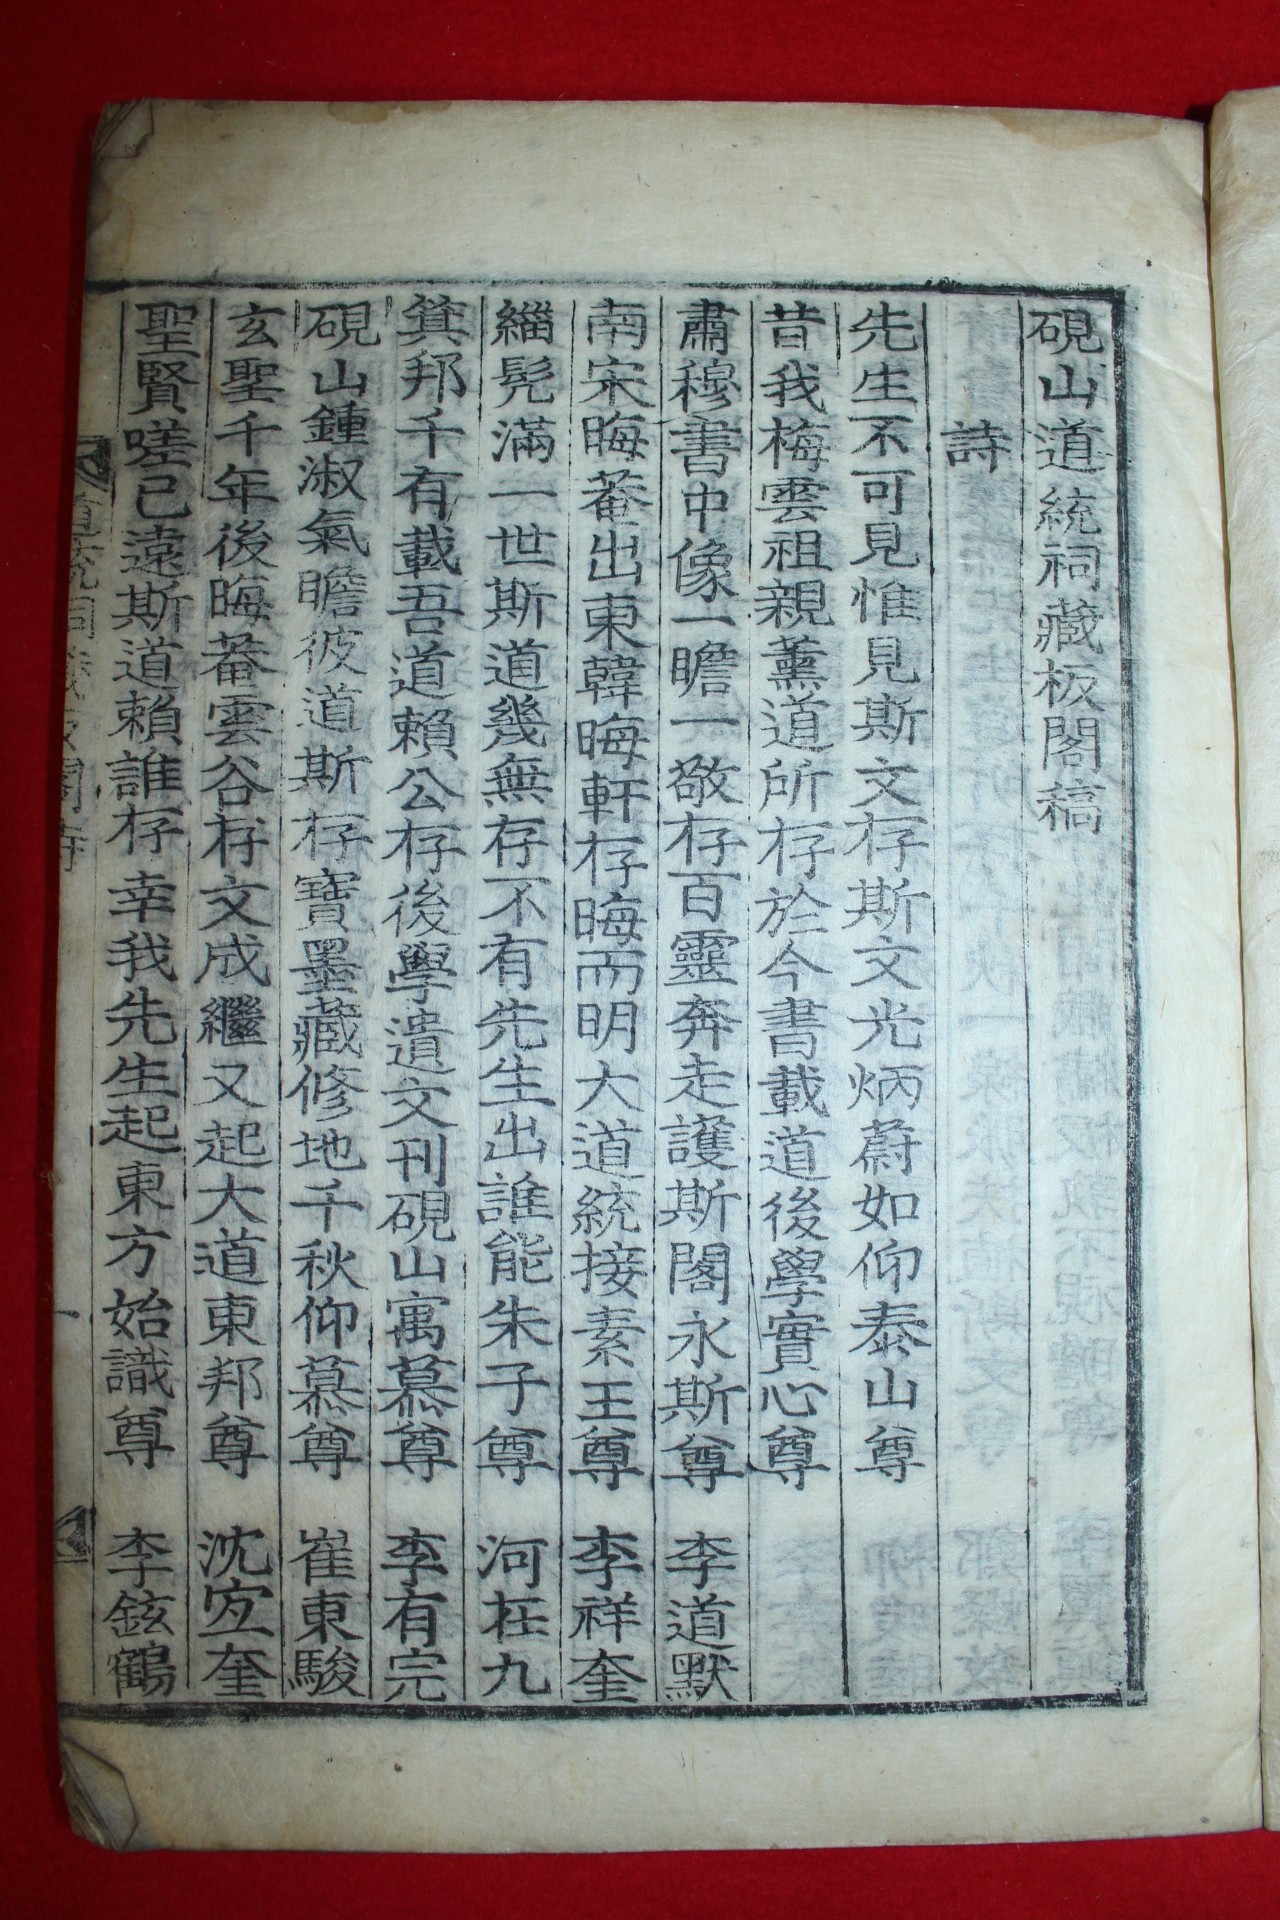 硯山道統祠藏板閣稿
詩
先生不可見惟見斯文存斯文光炳蔚如仰泰山尊
昔我梅雲祖親薰道所存於今書載道後學實心尊
肅穆書中像一瞻一敬存百靈奔走護斯閣永斯尊 李道默
南宋晦菴出東韓晦軒存晦而明大道統接素王尊 李祥奎
緇髡滿一世斯道幾無存不有先生出誰能朱子尊 河在九
箕邦千有載吾道賴公存後學遺文刊硯山寓慕尊 李有完
硯山鍾淑氣瞻彼道斯存寶墨藏修地千秋仰慕尊 崔東駿
玄聖千年後晦菴雲谷存文成繼又起大道東邦尊 沈宜奎
聖賢嗟已遠斯道賴誰存幸我先生起東方始識尊 李鉉鶴
道統祠藏板閣
一